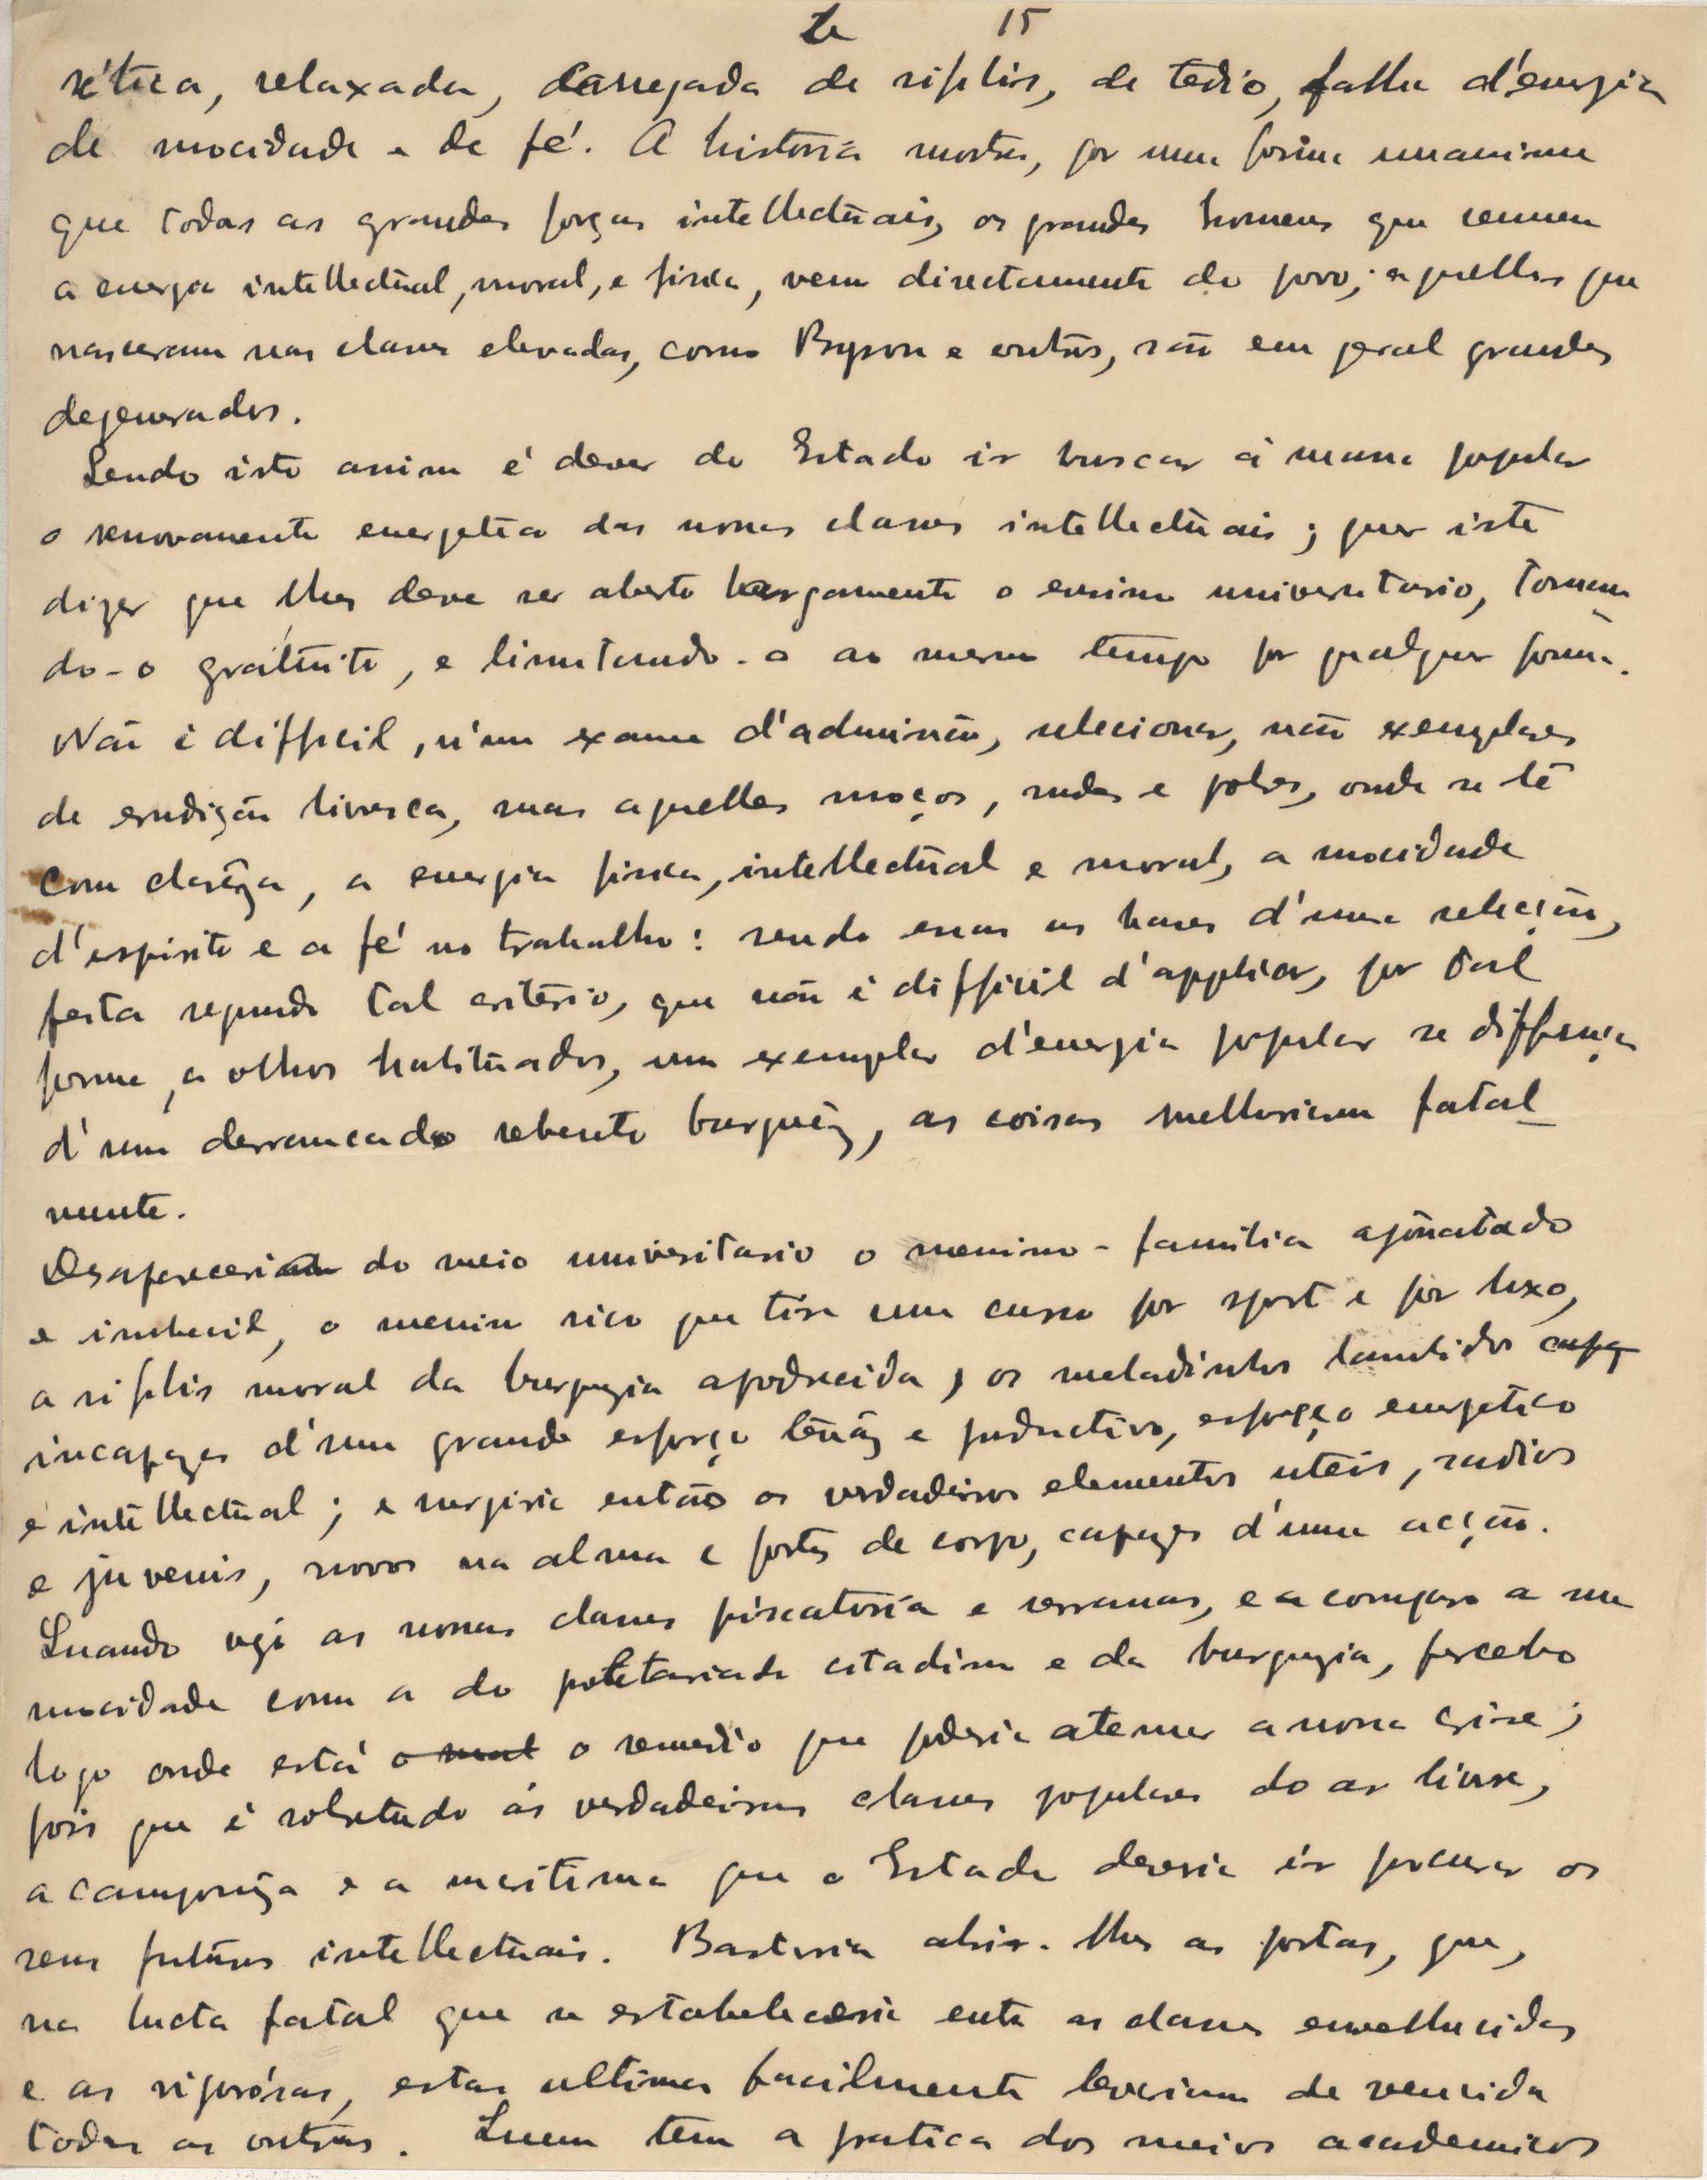 te 15
relaxada, carregada de sifilis, de tedio, falha d'energia
de mocidade e de fé. A historia mostra, por uma forma unanime
que todas as grandes forças intellectuais, os grandes homens que reunem
a energia intellectual, moral, e fisica, vem directamente do povo; aquelles que
nasceram nas classes elevadas, como Byron e outros, são em geral grandes
degenerados.
Sendo isto assim é dever do Estado ir buscar á massa popular
o renovamento energetico das nossas classes intellectuais; quer isto
dizer que lhes deve ser aberto largamente o ensino universitario, tornan
do-o gratuito, e limitando-o ao mesmo tempo por qualquer forma.
Não é difficil, n'um exame d'admissão, selecionar, não exemplares
de erudição livresca, mas aquelles moços, rudes e pobres, onde se lê
com clarêza, a energia fisica, intellectual e moral, a mocidade
d'espirito e a fé no trabalho: sendo essas as bases d'uma seleção,
feita segundo tal criterio, que não é difficil d'applicar, por tal
forma, a olhos habituados, um exemplar d'energia popular se differença
d'um derrancado rebento burguêz, as coisas melhoriam fatal_
mente.
Desapareceria do meio universitario o menino-familia
e imbecil, o menino rico que tira um curso por sport e por luxo,
a sifilis moral da burguezia apodrecida, os meladinhos lambidos
incapazes d'um grande esforço tenáz e productivo, esforço energetico
e intellectual; e surgiria então os verdadeiros elementos uteis, sadios
e juvenis, novos na alma e fortes de corpo, capazes d'uma acção.
Quando vejo as nossas classes piscatoria e serranas, e a comparo a sua
mocidade com a do proletariado citadino e da burguezia, percebo
logo onde está o mal o remedio que poderia atenuar a nossa crise;
pois que é sobretudo ás verdadeiras classes populares do ar livre,
a camponêza e a maritima que o Estado deveria ir procurar os
seus futuros intellectuais. Bastaria abrir-lhes as portas, que,
na lucta fatal que se estabeleceria entre as classes envelhecidas
e as vigorósas, estas ultimas facilmente levariam de vencida
todas as outras. Quem tem a pratica dos meios academicos